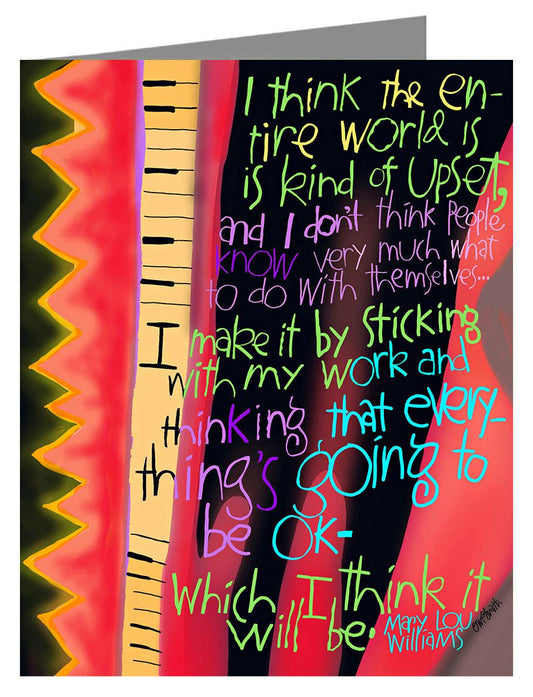 I think the en-
tire world is
is kind of upset,
and I don't think people
know very much what
to do with themselves...
I make it by sticking
with my work and
thinking that every-
thing's going to
be ok-
which I think it
will be. Mary Lou
Williams